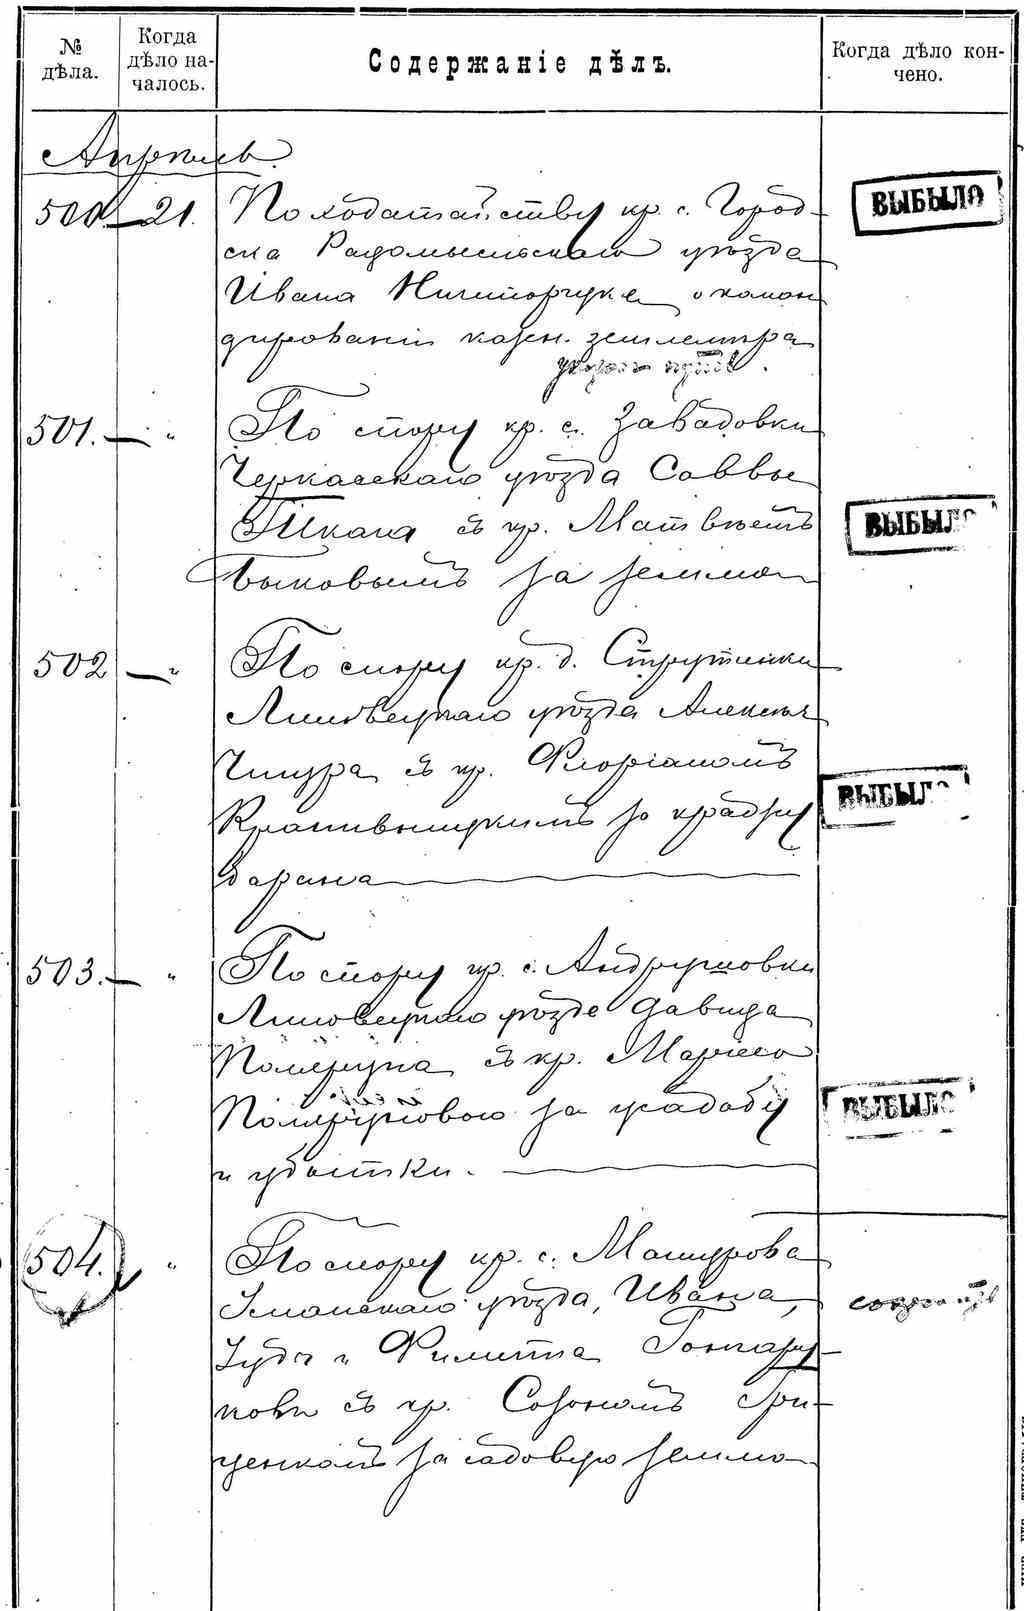 № дѣла.
Когда дѣло началось.
Содержаніе дѣлъ.
Когда дѣло кончено.
Апрѣль.
500. 21. По ходатайству кр. с. Город-
ска Радомысльскаго уѣзда
Ивана Ничипорчука о коман
дированіи казен. землемѣра
ВЫБЫЛО
501. — " По спору кр. с. Завадовки
Черкасскаго уѣзда Саввы
Шкала съ кр. Матвѣемъ
Быковымъ за землю
ВЫБЫЛО
502 — " По спору кр. д. Струтинки
Липовецкаго уѣзда Алексѣя
съ кр. Флоріаномъ
Кропивницкимъ за кражу
барана
ВЫБЫЛО
503. — " По спору кр. с. Андрушовки
Липовецкаго уѣзда Давида
съ кр. Маріею
за усадьбу
и убытки.
ВЫБЫЛО
504. " По спору кр. с. Машурова
Уманскаго уѣзда, Ивана,
и Филиппа Гончару-
ковы съ кр. Созономъ Гри-
ценкомъ за садовую землю